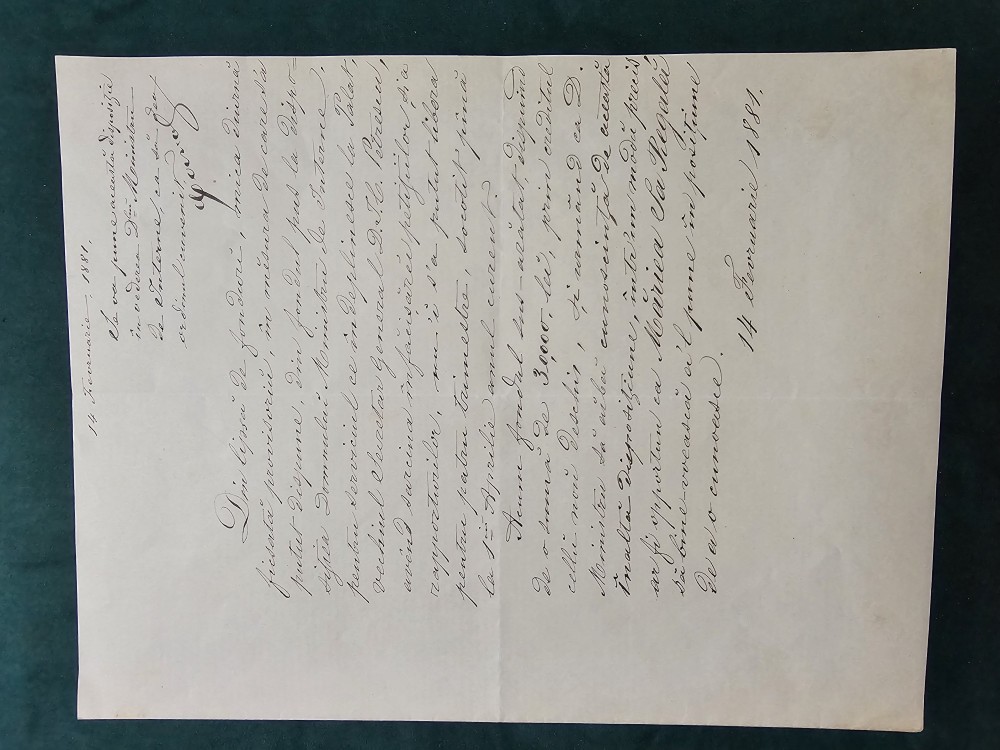 14 Fevruarie 1881.
Se va pune această disposiție
în vederea Dlui Ministru
de Interne, ca să dea
ordinul cuvenit.
Din lipsă de fonduri, mica diurnă
ficsată provisoriu, în măsura de care s'a
putut dispune, din fondul pus la dispo=
siția Domnului Ministru de Interne,
pentru serviciul ce îndeplinesce la Palat,
vechiul Secretar general D. S. C. Petrescu,
avênd sarcina înfăcișărei petițiilor și a
rapoartelor, nu i s'a putut libera
pentru patru trimestre, socotit pînă
la 1iu Aprilie anul curent.
Acum fondul sus-arătat dispuind
de o sumă de 3,000 lei, prin creditul
cellu noŭ deschis, și urmând ca D.
Ministru să aibă cunoscință de această
înaltă disposițiune, într'un modŭ precis,
ar fi opportun ca Măriea Sa Regală
să bine-voească a'l pune în posițiune
de a o cunoasce.
14 Fevruarie 1881.